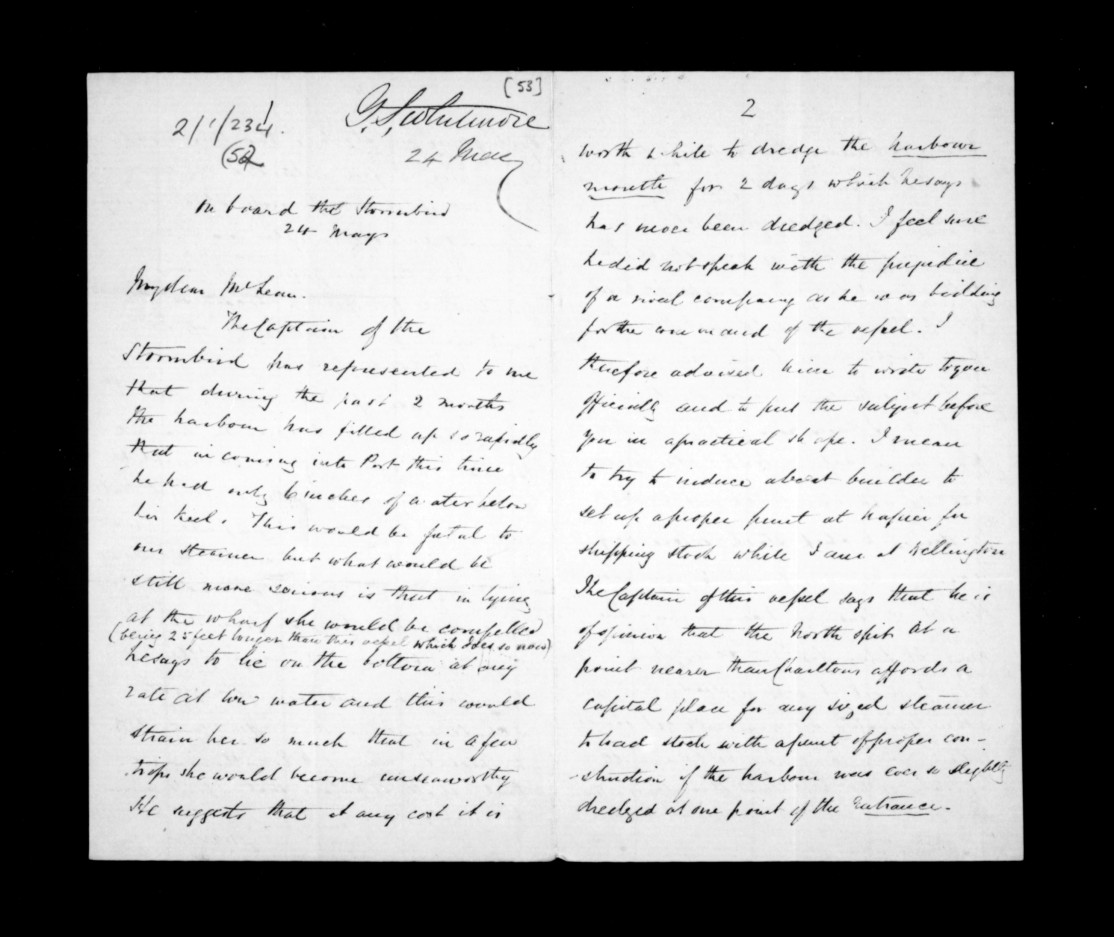 [53]
2/1/234.
(52
G. S. Whitmore
24 May
on board the Stormbird
24 May
My dear McLean.
The Captain of the
Stormbird has represented to me
that during the past 2 months
the harbour has filled up so rapidly
that in coming into Port this time
he had only 6 inches of water below
his keel. This would be fatal to
our steamer but what would be
still more serious is that in lying
at the wharf she would be compelled
(being 25 feet longer than this vessel which does so now)
he says to lie on the bottom at any
rate at low water and this would
strain her so much that in a few
trips she would become unseaworthy
He suggests that at any cost it is
2
worth while to dredge the harbour
mouth for 2 days which he says
has never been dredged. I feel sure
he did not speak with the prejudice
of a rival company as he was bidding
for the command of the vessel. I
therefore advised him to write to you
officially and to put the subject before
you in a practical shape. I mean
to try to induce a boat builder to
set up a proper punt at Napier for
shipping stock while I am at Wellington
The Captain of this vessel says that he is
of opinion that the North spit at a
point nearer than Charltons affords a
capital place for any sized steamer
to load stock with a punt of proper con-
-struction if the harbour was ever so slightly
dredged at one point of the Entrance.